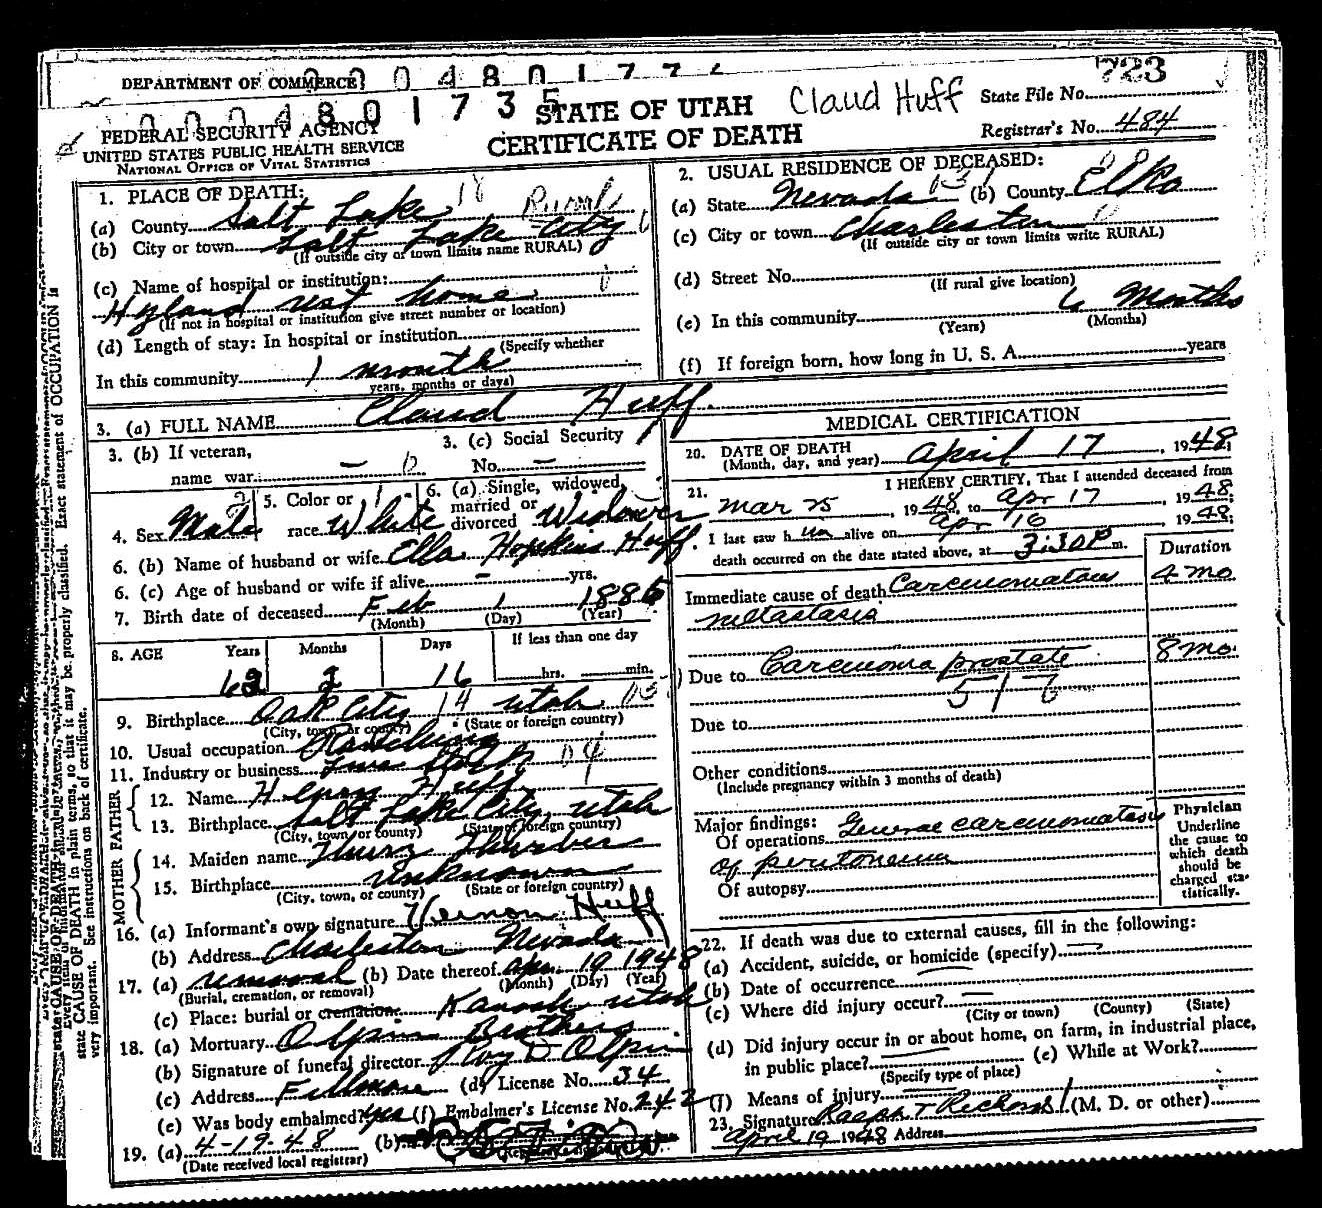 DEPARTMENT OF COMMERCE
0004801735
723
STATE OF UTAH
Claud Huff
State File No.
FEDERAL SECURITY AGENCY
UNITED STATES PUBLIC HEALTH SERVICE
NATIONAL OFFICE OF VITAL STATISTICS
CERTIFICATE OF DEATH
Registrar's No. 484
1. PLACE OF DEATH: 18 Rural
(a) County Salt Lake
(b) City or town Salt Lake City
(If outside city or town limits name RURAL)
(c) Name of hospital or institution:
Hyland rest home
(If not in hospital or institution give street number or location)
(d) Length of stay: In hospital or institution
(Specify whether
In this community 1 month
years, months or days)
2. USUAL RESIDENCE OF DECEASED:
(a) State Nevada (b) County Elko
(c) City or town Charleston
(If outside city or town limits write RURAL)
(d) Street No.
(If rural give location)
(e) In this community 6 Months
(Years) (Months)
(f) If foreign born, how long in U. S. A. years
3. (a) FULL NAME Claud Huff.
3. (b) If veteran, name war —
3. (c) Social Security No. —
4. Sex Male
5. Color or race White
6. (a) Single, widowed, married or divorced Widower
6. (b) Name of husband or wife Ella Hopkins Huff
6. (c) Age of husband or wife if alive - yrs.
7. Birth date of deceased Feb 1 1886
(Month) (Day) (Year)
8. AGE Years Months Days If less than one day
62 2 16 hrs. min.
9. Birthplace Oak City 14 Utah
(City, town, or county) (State or foreign country)
10. Usual occupation Ranching
11. Industry or business Live Stock
FATHER
12. Name Henry Huff
13. Birthplace Salt Lake City, Utah
(City, town, or county) (State or foreign country)
MOTHER
14. Maiden name Thurz Thurber
15. Birthplace unknown
(City, town, or county) (State or foreign country)
16. (a) Informant's own signature Vernon Huff
(b) Address Charleston Nevada
17. (a) removal (b) Date thereof Apr. 19 1948
(Burial, cremation, or removal) (Month) (Day) (Year)
(c) Place: burial or cremation Kanosh, Utah
18. (a) Mortuary Olpin Brothers
(b) Signature of funeral director Roy D Olpin
(c) Address Fillmore (d) License No. 34
(e) Was body embalmed? yes (f) Embalmer's License No. 242
19. (a) 4-19-48 (b)
(Date received local registrar)
MEDICAL CERTIFICATION
20. DATE OF DEATH
(Month, day, and year) April 17, 1948;
21. I HEREBY CERTIFY, That I attended deceased from
Mar 25, 1948, to Apr 17, 1948;
I last saw him alive on Apr 16 1948;
death occurred on the date stated above, at 3:30 P m.
Duration
Immediate cause of death Carcinomatous 4 mo
metastasis
Due to Carcinoma prostate 8 mo.
Due to
Other conditions
(Include pregnancy within 3 months of death)
Major findings:
Of operations General carcinomatosis
of peritoneum
Of autopsy
Physician
Underline
the cause to
which death
should be
charged sta-
tistically.
22. If death was due to external causes, fill in the following:
(a) Accident, suicide, or homicide (specify) —
(b) Date of occurrence —
(c) Where did injury occur? —
(City or town) (County) (State)
(d) Did injury occur in or about home, on farm, in industrial place,
in public place? (e) While at Work?
(Specify type of place)
(f) Means of injury
23. Signature Ralph T Richards (M. D. or other)
April 19 1948 Address